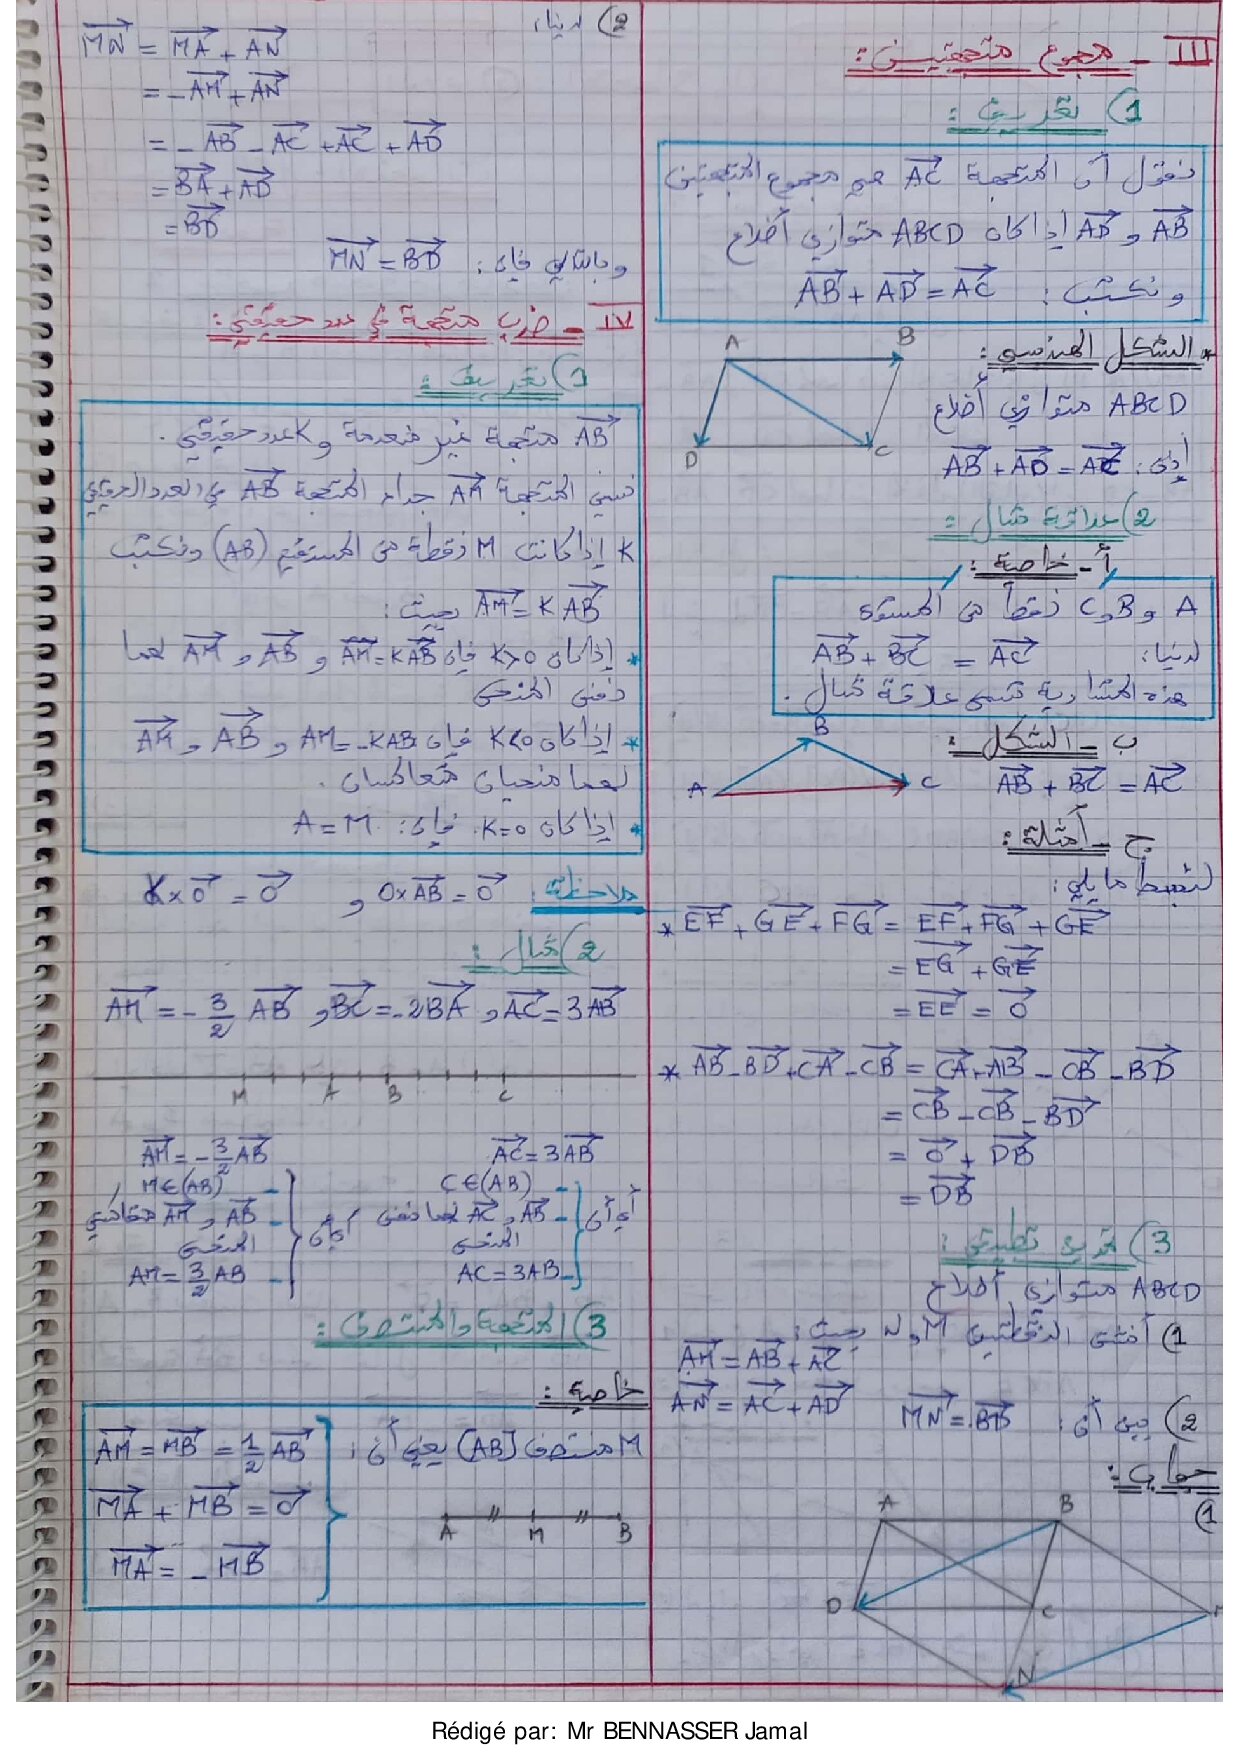 III - مجموع متجهتين :
1) تعريف :
نقول أن المتجهة $\overrightarrow{AC}$ هي مجموع المتجهتين
$\overrightarrow{AB}$ و $\overrightarrow{AD}$ إذا كان ABCD متوازي أضلاع
ونكتب : $\overrightarrow{AB} + \overrightarrow{AD} = \overrightarrow{AC}$
* الشكل الهندسي :
A B
D C
ABCD متوازي أضلاع
إذن : $\overrightarrow{AB} + \overrightarrow{AD} = \overrightarrow{AC}$
2) علاقة شال :
أ - خاصية :
A و B و C نقط من المستوى
لدينا : $\overrightarrow{AB} + \overrightarrow{BC} = \overrightarrow{AC}$
هذه المتساوية تسمى علاقة شال .
ب - الشكل :
A B C
$\overrightarrow{AB} + \overrightarrow{BC} = \overrightarrow{AC}$
ج - أمثلة :
لنبسط ما يلي :
* $\overrightarrow{EF} + \overrightarrow{GE} + \overrightarrow{FG} = \overrightarrow{EF} + \overrightarrow{FG} + \overrightarrow{GE}$
$= \overrightarrow{EG} + \overrightarrow{GE}$
$= \overrightarrow{EE} = \overrightarrow{0}$
* $\overrightarrow{AB} - \overrightarrow{BD} + \overrightarrow{CA} - \overrightarrow{CB} = \overrightarrow{CA} + \overrightarrow{AB} - \overrightarrow{CB} - \overrightarrow{BD}$
$= \overrightarrow{CB} - \overrightarrow{CB} - \overrightarrow{BD}$
$= \overrightarrow{0} + \overrightarrow{DB}$
$= \overrightarrow{DB}$
3) تمرين تطبيقي :
ABCD متوازي أضلاع
1) أنشئ النقطتين M و N بحيث :
$\overrightarrow{AM} = \overrightarrow{AB} + \overrightarrow{AC}$
$\overrightarrow{AN} = \overrightarrow{AC} + \overrightarrow{AD}$
2) بين أن : $\overrightarrow{MN} = \overrightarrow{BD}$
جواب :
1)
A B
D C
N
2) لدينا :
$\overrightarrow{MN} = \overrightarrow{MA} + \overrightarrow{AN}$
$= -\overrightarrow{AM} + \overrightarrow{AN}$
$= -\overrightarrow{AB} - \overrightarrow{AC} + \overrightarrow{AC} + \overrightarrow{AD}$
$= \overrightarrow{BA} + \overrightarrow{AD}$
$= \overrightarrow{BD}$
وبالتالي فإن : $\overrightarrow{MN} = \overrightarrow{BD}$
IV - ضرب متجهة في عدد حقيقي :
1) تعريف :
$\overrightarrow{AB}$ متجهة غير منعدمة و K عدد حقيقي .
نسمي المتجهة $\overrightarrow{AM}$ جداء المتجهة $\overrightarrow{AB}$ في العدد الحقيقي
K إذا كانت M نقطة من المستقيم (AB) ونكتب
$\overrightarrow{AM} = K\overrightarrow{AB}$ بحيث :
* إذا كان K>0 فإن $\overrightarrow{AM} = K\overrightarrow{AB}$ و $\overrightarrow{AB}$ و $\overrightarrow{AM}$ لهما
نفس المنحى
* إذا كان K<0 فإن AM = -KAB و $\overrightarrow{AB}$ و $\overrightarrow{AM}$
لهما منحيان متعاكسان .
* إذا كان K=0 فإن : A = M
ملاحظة : $0 \times \overrightarrow{AB} = \overrightarrow{0}$ و $K \times \overrightarrow{0} = \overrightarrow{0}$
2) مثال :
$\overrightarrow{AM} = -\frac{3}{2}\overrightarrow{AB}$ و $\overrightarrow{BC} = -2\overrightarrow{BA}$ و $\overrightarrow{AC} = 3\overrightarrow{AB}$
M A B C
$\overrightarrow{AC} = 3\overrightarrow{AB}$
أي أن
- C∈(AB)
- $\overrightarrow{AB}$ و $\overrightarrow{AC}$ لهما نفس
المنحى
- AC = 3AB
$\overrightarrow{AM} = -\frac{3}{2}\overrightarrow{AB}$
- M∈(AB)
- $\overrightarrow{AB}$ و $\overrightarrow{AM}$
المنحى
- $AM = \frac{3}{2}AB$
3) المتجهة والمنتصف :
خاصية :
M منتصف [AB] يعني أن :
$\overrightarrow{AM} = \overrightarrow{MB} = \frac{1}{2}\overrightarrow{AB}$
$\overrightarrow{MA} + \overrightarrow{MB} = \overrightarrow{0}$
$\overrightarrow{MA} = -\overrightarrow{MB}$
A M B
Rédigé par: Mr BENNASSER Jamal